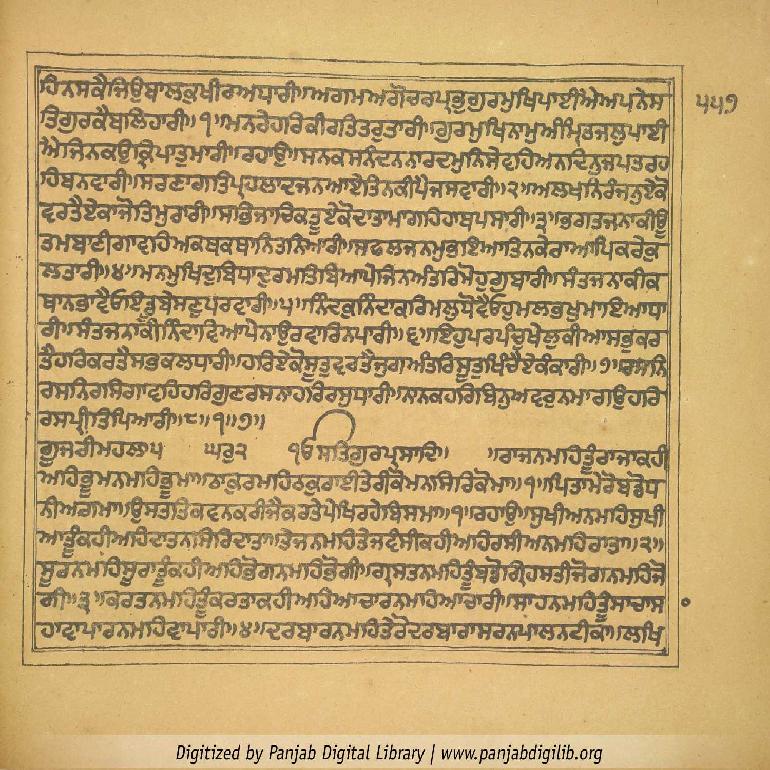 ਹਿਨਸਕੈਜਿਉਬਾਲਕੁਖੀਰਅਧਾਰੀ॥ਅਗਮਅਗੋਚਰਪ੍ਰਭੁਗੁਰਮੁਖਿਪਾਈਐਅਪਨੇਸ
ਤਿਗੁਰਕੈਬਲਿਹਾਰੀ॥੧॥ਮਨਰੇਹਰਿਕੀਰਤਿਤਰੁਤਾਰੀ॥ਗੁਰਮੁਖਿਨਾਮੁਅੰਮ੍ਰਿਤਜਲੁਪਾਈ
ਐਜਿਨਕਉਕ੍ਰਿਪਾਤੁਮਾਰੀ॥ਰਹਾਉ॥ਸਨਕਸਨੰਦਨਨਾਰਦਮੁਨਿਸੇਵਹਿਅਨਦਿਨੁਜਪਤਰਹ
ਹਿਬਨਵਾਰੀ॥ਸਰਣਾਗਤਿਪ੍ਰਹਲਾਦਜਨਆਏਤਿਨਕੀਪੈਜਸਵਾਰੀ॥੨॥ਅਲਖਨਿਰੰਜਨੁਏਕੋ
ਵਰਤੈਏਕਾਜੋਤਿਮੁਰਾਰੀ॥ਸਭਿਜਾਚਿਕਤੂਏਕੋਦਾਤਾਮਾਗਹਿਹਾਥਪਸਾਰੀ॥੩॥ਭਗਤਜਨਾਕੀਊ
ਤਮਬਾਣੀਗਾਵਹਿਅਕਥਕਥਾਨਿਤਨਿਆਰੀ॥ਸਫਲਜਨਮੁਭਇਆਤਿਨਕੇਰਾਆਪਿਤਰੇਕੁ
ਲਤਾਰੀ॥੪॥ਮਨਮੁਖਿਦੁਬਿਧਾਦੁਰਮਤਿਬਿਆਪੇਜਿਨਅੰਤਰਿਮੋਹੁਗੁਬਾਰੀ॥ਸੰਤਜਨਾਕੀਕ
ਥਾਨਭਾਵੈਓਇਡੂਬੇਸਣੁਪਰਵਾਰੀ॥੫॥ਨਿੰਦਕੁਨਿੰਦਾਕਰਿਮਲੁਧੋਵੈਓਹੁਮਲਭਖੁਮਾਇਆਧਾ
ਰੀ॥ਸੰਤਜਨਾਕੀਨਿੰਦਾਵਿਆਪੇਨਾਉਰਵਾਰਿਨਪਾਰੀ॥੬॥ਇਹੁਪਰਪੰਚੁਖੇਲੁਕੀਆਸਭੁਕਰ
ਤੈਹਰਿਕਰਤੈਸਭਕਲਧਾਰੀ॥ਹਰਿਏਕੋਸੂਤੁਵਰਤੈਜੁਗਅੰਤਰਿਸੂਤੁਖਿੰਚੈਏਕੰਕਾਰੀ॥੭॥ਰਸਨਿ
ਰਸਨਿਰਸਿਗਾਵਹਿਹਰਿਗੁਣਰਸਨਾਹਰਿਰਸੁਧਾਰੀ॥ਨਾਨਕਹਰਿਬਿਨੁਅਵਰੁਨਮਾਗਉਹਰਿ
ਰਸਪ੍ਰੀਤਿਪਿਆਰੀ॥੮॥੧॥੭॥
ਗੂਜਰੀਮਹਲਾ੫ ਘਰੁ੨ ੴਸਤਿਗੁਰਪ੍ਰਸਾਦਿ॥ ॥ਰਾਜਨਮਹਿਤੂੰਰਾਜਾਕਹੀ
ਅਹਿਭੂਮਨਮਹਿਭੂਮਾ॥ਠਾਕੁਰਮਹਿਠਕੁਰਾਈਤੇਰੀਕੋਮਨਸਿਰਿਕੋਮਾ॥੧॥ਪਿਤਾਮੇਰੋਬਡੋਧ
ਨੀਅਗਮਾ॥ਉਸਤਤਿਕਵਨਕਰੀਜੈਕਰਤੇਪੇਖਿਰਹੇਬਿਸਮਾ॥੧॥ਰਹਾਉ॥ਸੁਖੀਅਨਮਹਿਸੁਖੀ
ਆਤੂੰਕਹੀਅਹਿਦਾਤਨਸਿਰਿਦਾਤਾ॥ਤੇਜਨਮਹਿਤੇਜਵੰਸੀਕਹੀਅਹਿਰਸੀਅਨਮਹਿਰਾਤਾ॥੨॥
ਸੂਰਨਮਹਿਸੂਰਾਤੂੰਕਹੀਅਹਿਭੋਗਨਮਹਿਭੋਗੀ॥ਗ੍ਰਸਤਨਮਹਿਤੂੰਬਡੋਗ੍ਰਿਹਸਤੀਜੋਗਨਮਹਿਜੋ
ਗੀ॥੩॥ਕਰਤਨਮਹਿਤੂੰਕਰਤਾਕਹੀਅਹਿਆਚਾਰਨਮਹਿਆਚਾਰੀ॥ਸਾਹਨਮਹਿਤੂੰਸਾਚਾਸਾ
ਹਾਵਾਪਾਰਨਮਹਿਵਾਪਾਰੀ॥੪॥ਦਰਬਾਰਨਮਹਿਤੇਰੋਦਰਬਾਰਾਸਰਨਪਾਲਨਟੀਕਾ॥ਲਖਿ
੫੫੭
Digitized by Panjab Digital Library | www.panjabdigilib.org